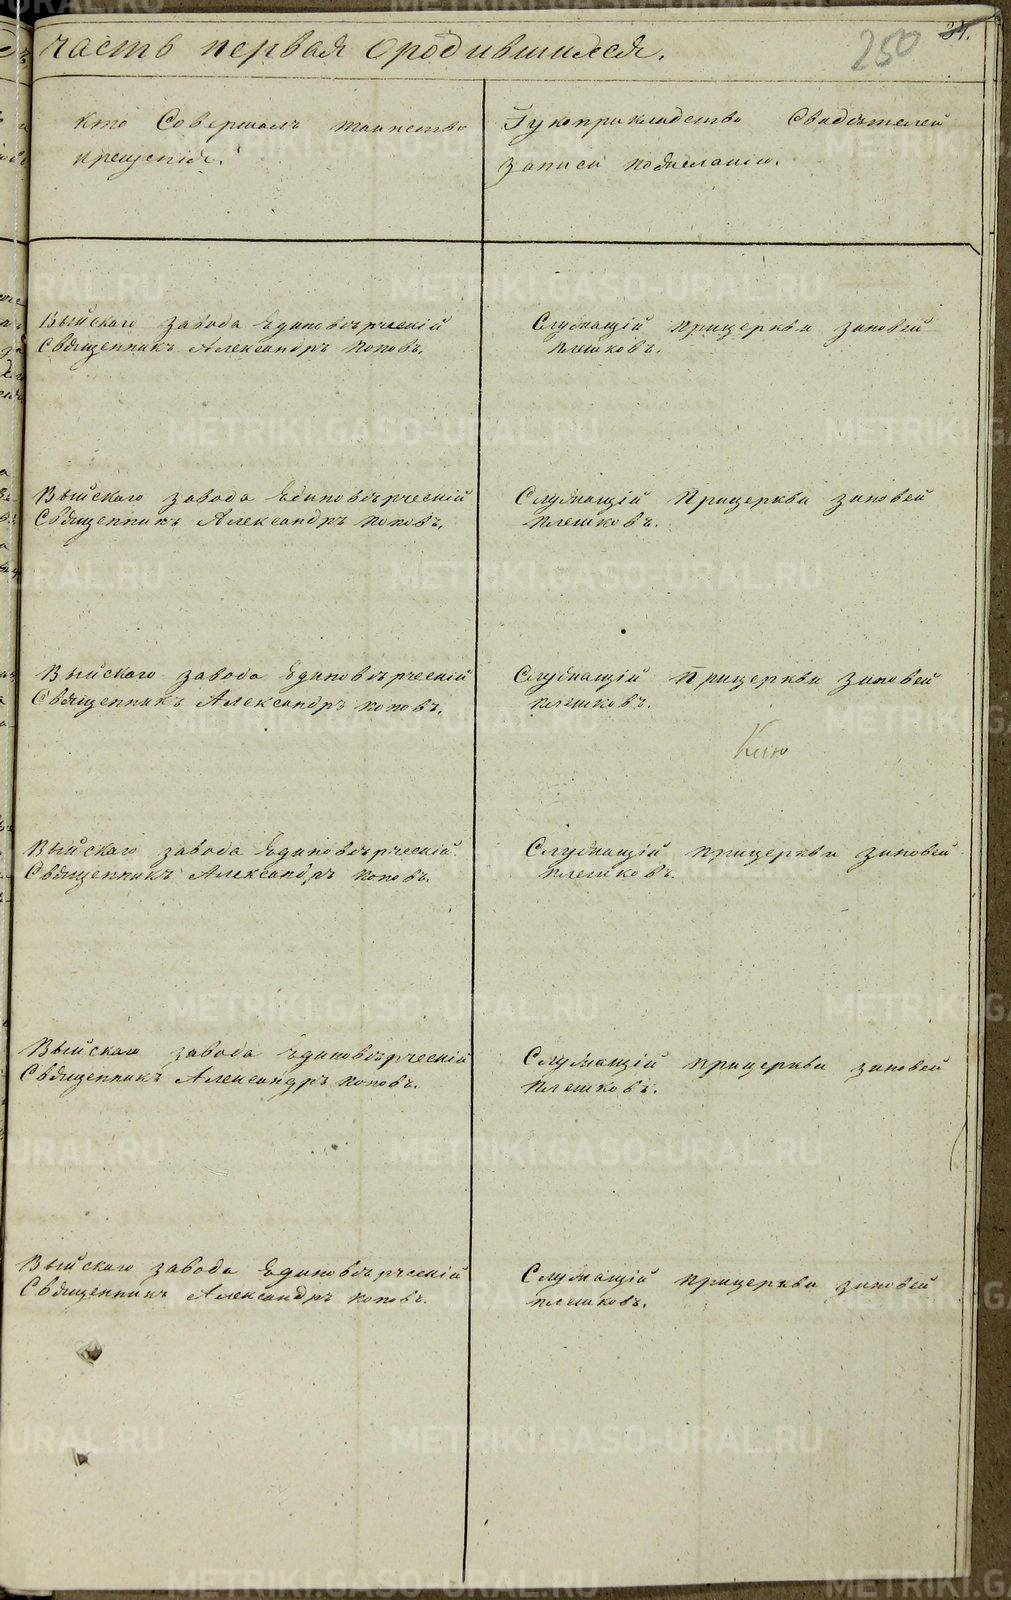 часть первая о родившихся.
250
34.
Кто Совершалъ таинство
крещенія.
Рукоприкладство Свидѣтелей
записи пожеланiю.
Выйскаго завода Единовѣрческій
Священникъ Александръ поповъ.
Служащій при церкви зиновей
плешковъ.
Выйскаго завода Единовѣрческій
Священникъ Александръ поповъ.
Служащій При церкви зиновей
плешковъ.
Выйскаго завода Единовѣрческій
Священникъ Александръ поповъ.
Служащій При церкви зиновей
плешковъ.
Выйскаго завода Единовѣрческій
Священникъ Александръ поповъ.
Служащій при церкви зиновей
плешковъ.
Выйскаго завода Единовѣрческій
Священникъ Александръ поповъ.
Служащій при церкви зиновей
плешковъ.
Выйскаго завода Единовѣрческій
Священникъ Александръ поповъ.
Служащій при церкви зиновей
плешковъ.
METRIKI.GASO-URAL.RU